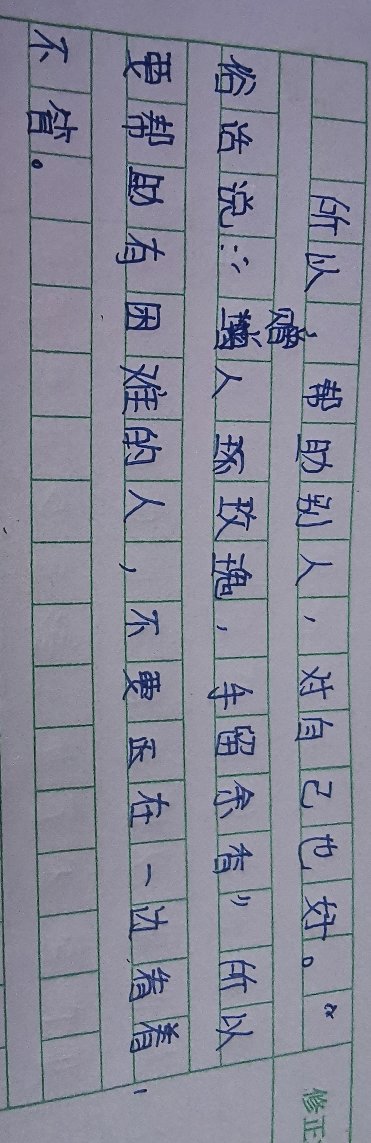 所以，帮助别人，对自己也好。“
俗话说：“赠人玫瑰，手留余香”所以
要帮助有困难的人，不要在一边看着
不管。
修正